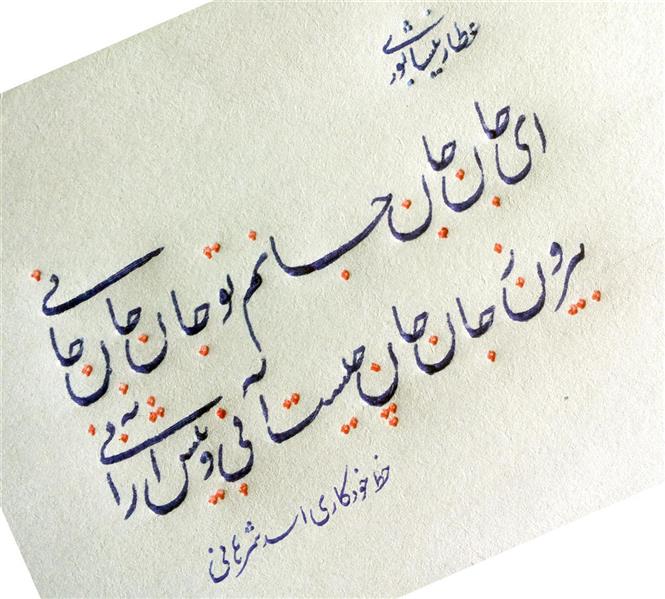 عطار نیشابوری
ای جان جان جانم تو جان جان جانی
بیرون ز جان جان چیست آنی و بیش از آنی
خط خودکاری اسد